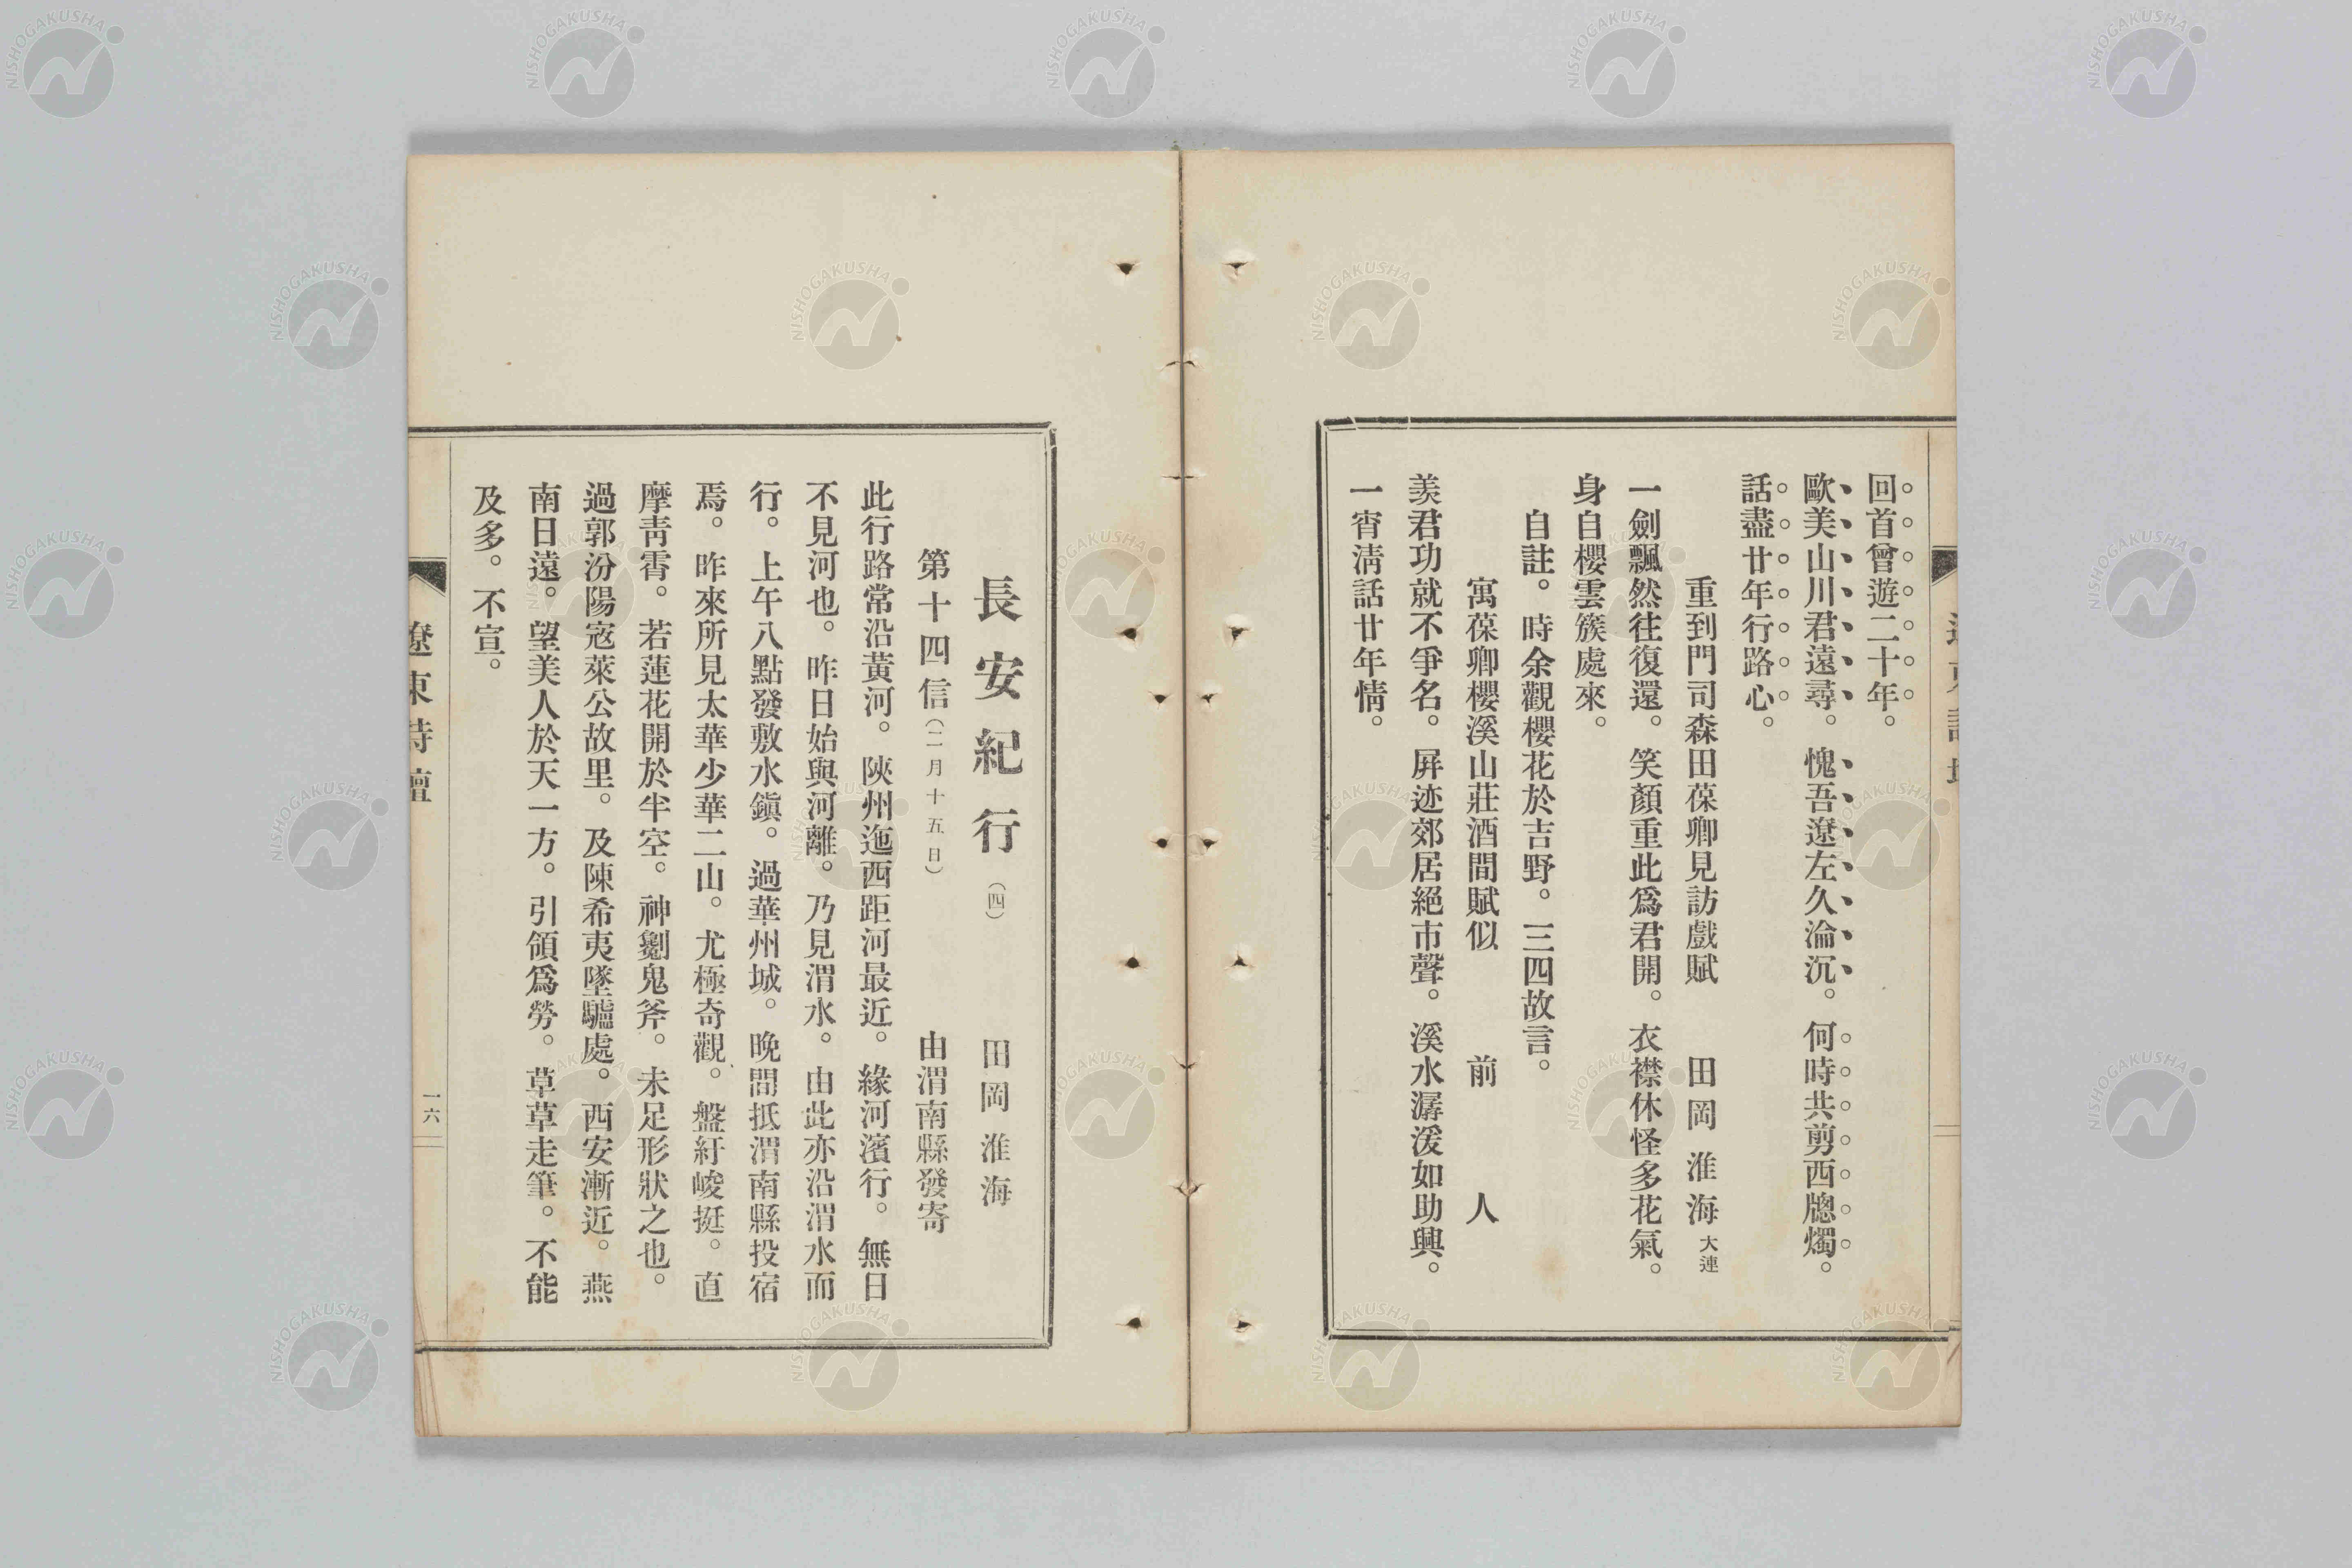 回首曾遊二十年。
歐美山川君遠尋。愧吾遼左久淪沉。何時共剪西牕燭。
話盡廿年行路心。
重到門司森田葆卿見訪戲賦 田岡淮海大連
一劍飄然往復還。笑顏重此爲君開。衣襟休怪多花氣。
身自櫻雲簇處來。
自註。時余觀櫻花於吉野。三四故言。
寓葆卿櫻溪山莊酒間賦似 前人
羨君功就不爭名。屏迹郊居絕市聲。溪水潺湲如助興。
一宵淸話廿年情。
長安紀行(四) 田岡淮海
第十四信(二月十五日) 由渭南縣發寄
此行路常沿黃河。陝州迤西距河最近。緣河濱行。無日
不見河也。昨日始與河離。乃見渭水。由此亦沿渭水而
行。上午八點發敷水鎭。過華州城。晚間抵渭南縣投宿
焉。昨來所見太華少華二山。尤極奇觀。盤紆峻挺。直
摩靑霄。若蓮花開於半空。神劖鬼斧。未足形狀之也。
過郭汾陽寇萊公故里。及陳希夷墜驢處。西安漸近。燕
南日遠。望美人於天一方。引領爲勞。草草走筆。不能
及多。不宣。
遼東詩壇 一六
NISHOGAKUSHA